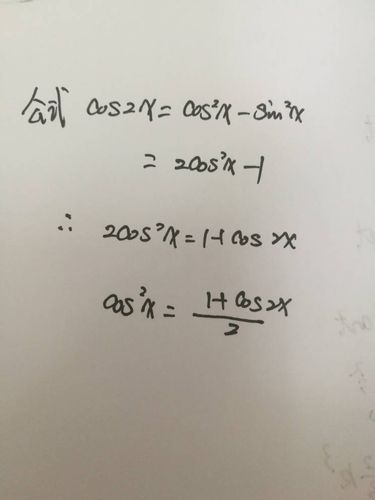 公式 cos2x = cos²x - sin²x
= 2cos²x - 1
∴ 2cos²x = 1 + cos 2x
cos²x = (1 + cos2x)/2